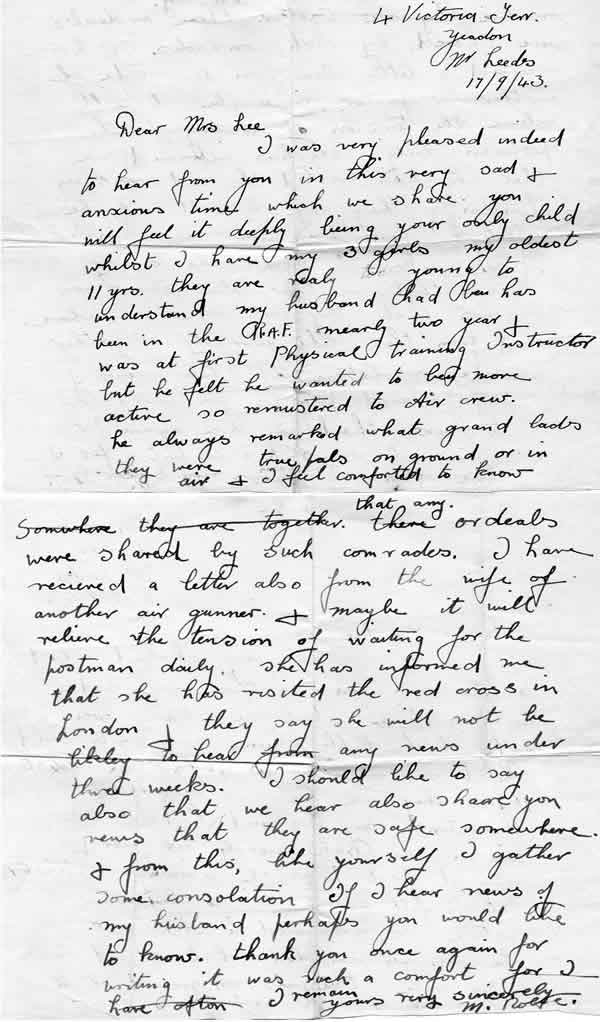 4 Victoria Terr.
Yeadon
Nr Leeds
17/9/43.
Dear Mrs Lee
I was very pleased indeed
to hear from you in this very sad &
anxious time which we share you
will feel it deeply being your only child
whilst I have my 3 girls my oldest
11 yrs. they are realy young to
understand my husband had been has
been in the R.A.F. nearly two year &
was at first Physical training Instructor
but he felt he wanted to be more
active so remustered to Air crew.
he always remarked what grand lads
they were true pals on ground or in
air & I feel comforted to know
that any.
Somwhere they are together. there ordeals
were shared by such comrades. I have
recieved a letter also from the wife of
another air gunner. & maybe it will
relieve the tension of waiting for the
postman daily. she has informed me
that she has visited the red cross in
London & they say she will not be
likley to hear from any news under
three weeks. I should like to say
also that we hear also share you
news that they are safe somewhere.
& from this, like yourself I gather
some consolation If I hear news of
my husband perhaps you would like
to know. thank you once again for
writing it was such a comfort for I
have often I remain
yours very sincerely
M. Rolfe.